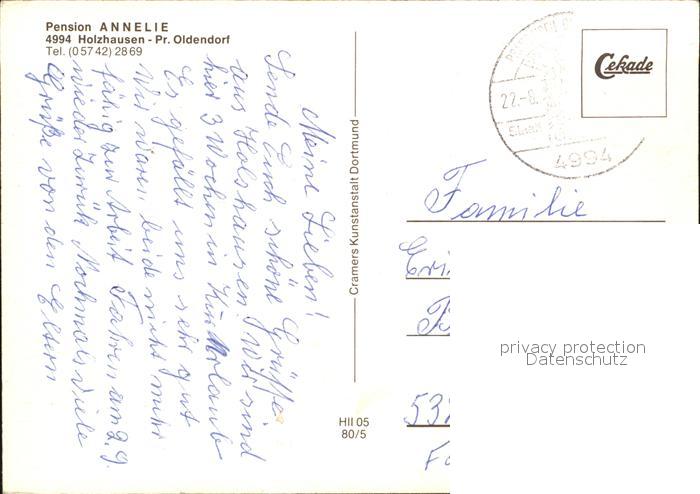 Pension ANNELIE
4994 Holzhausen - Pr. Oldendorf
Tel. (05742) 2869
Meine Lieben!
Sende Euch schöne Grüße
aus Holshausen. Wir sind
hier 3 Wochen im Urlaub
Es gefällt uns sehr gut
Wir waren beide nicht mehr
fähig zur Arbeit Fahren am 2.9.
wieder zurück Nochmals viele
Grüße von den Eltern
Cramers Kunstanstalt Dortmund
HII 05
80/5
22.-8.
4994
Cekade
Familie
Eri
53
privacy protection
Datenschutz